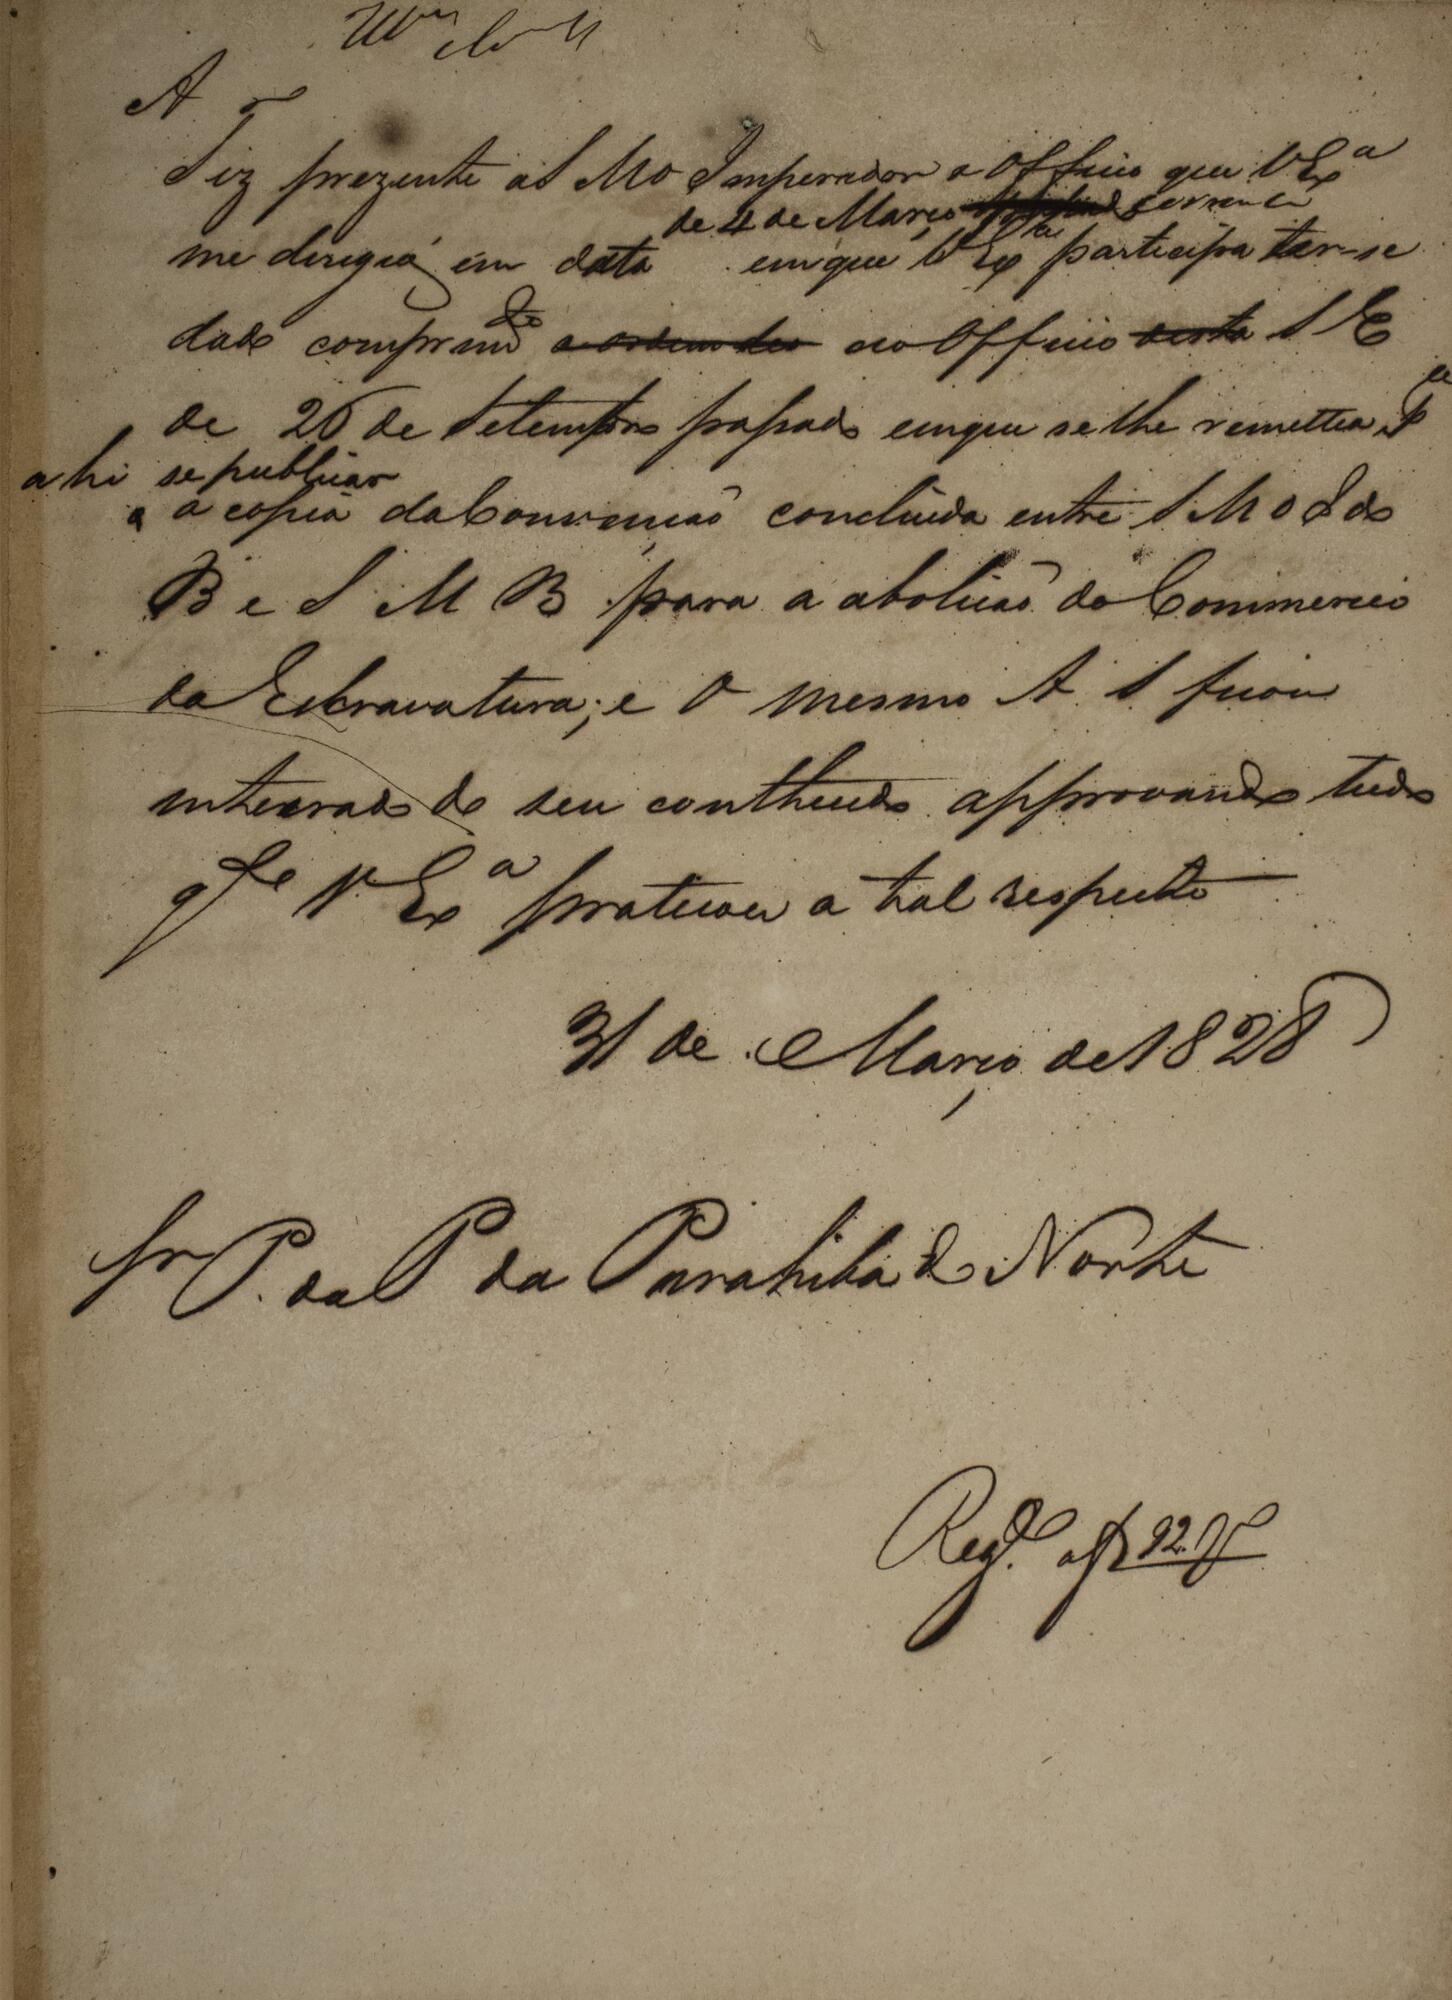 A
Fiz prezente a S M o Imperador o Officio que V Ex.ª
de 4 de Março corrente
me dirigio em data em que V Ex.ª participa ter-se
dado comprim.do a ordem do ao Officio desta S E
de 26 de Setembro passado em que se lhe remettia p.ª
ahi se publicar
a copia da Convenção concluida entre S M O I do
B e S M B para a abolição do Commercio
da Escravatura; e O mesmo A S ficou
inteirado de seu contheudo approvando tudo
q.to V Ex.ª praticou a tal respeito
31 de Março de 1828
Sr P. da P da Parahiba do Norte
Reg.do a f 92. V